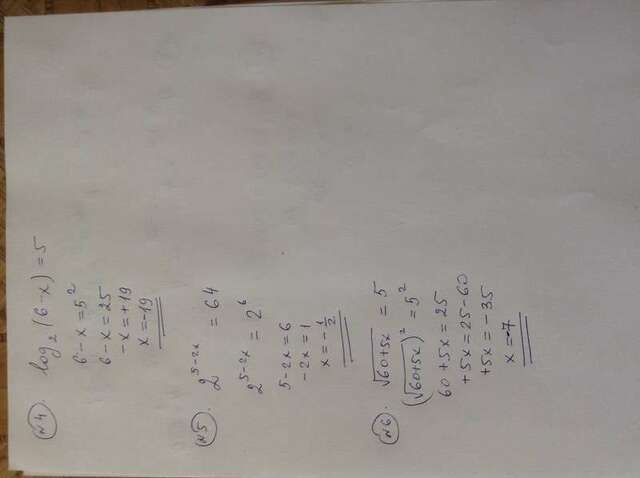 №4. log₂(6-x)=5
6-x=5²
6-x=25
-x=+19
x=-19
№5. 2⁵⁻²ˣ = 64
2⁵⁻²ˣ = 2⁶
5-2x=6
-2x=1
x=-1/2
№6. √(60+5x) = 5
(√(60+5x))² = 5²
60+5x=25
+5x=25-60
+5x=-35
x=-7